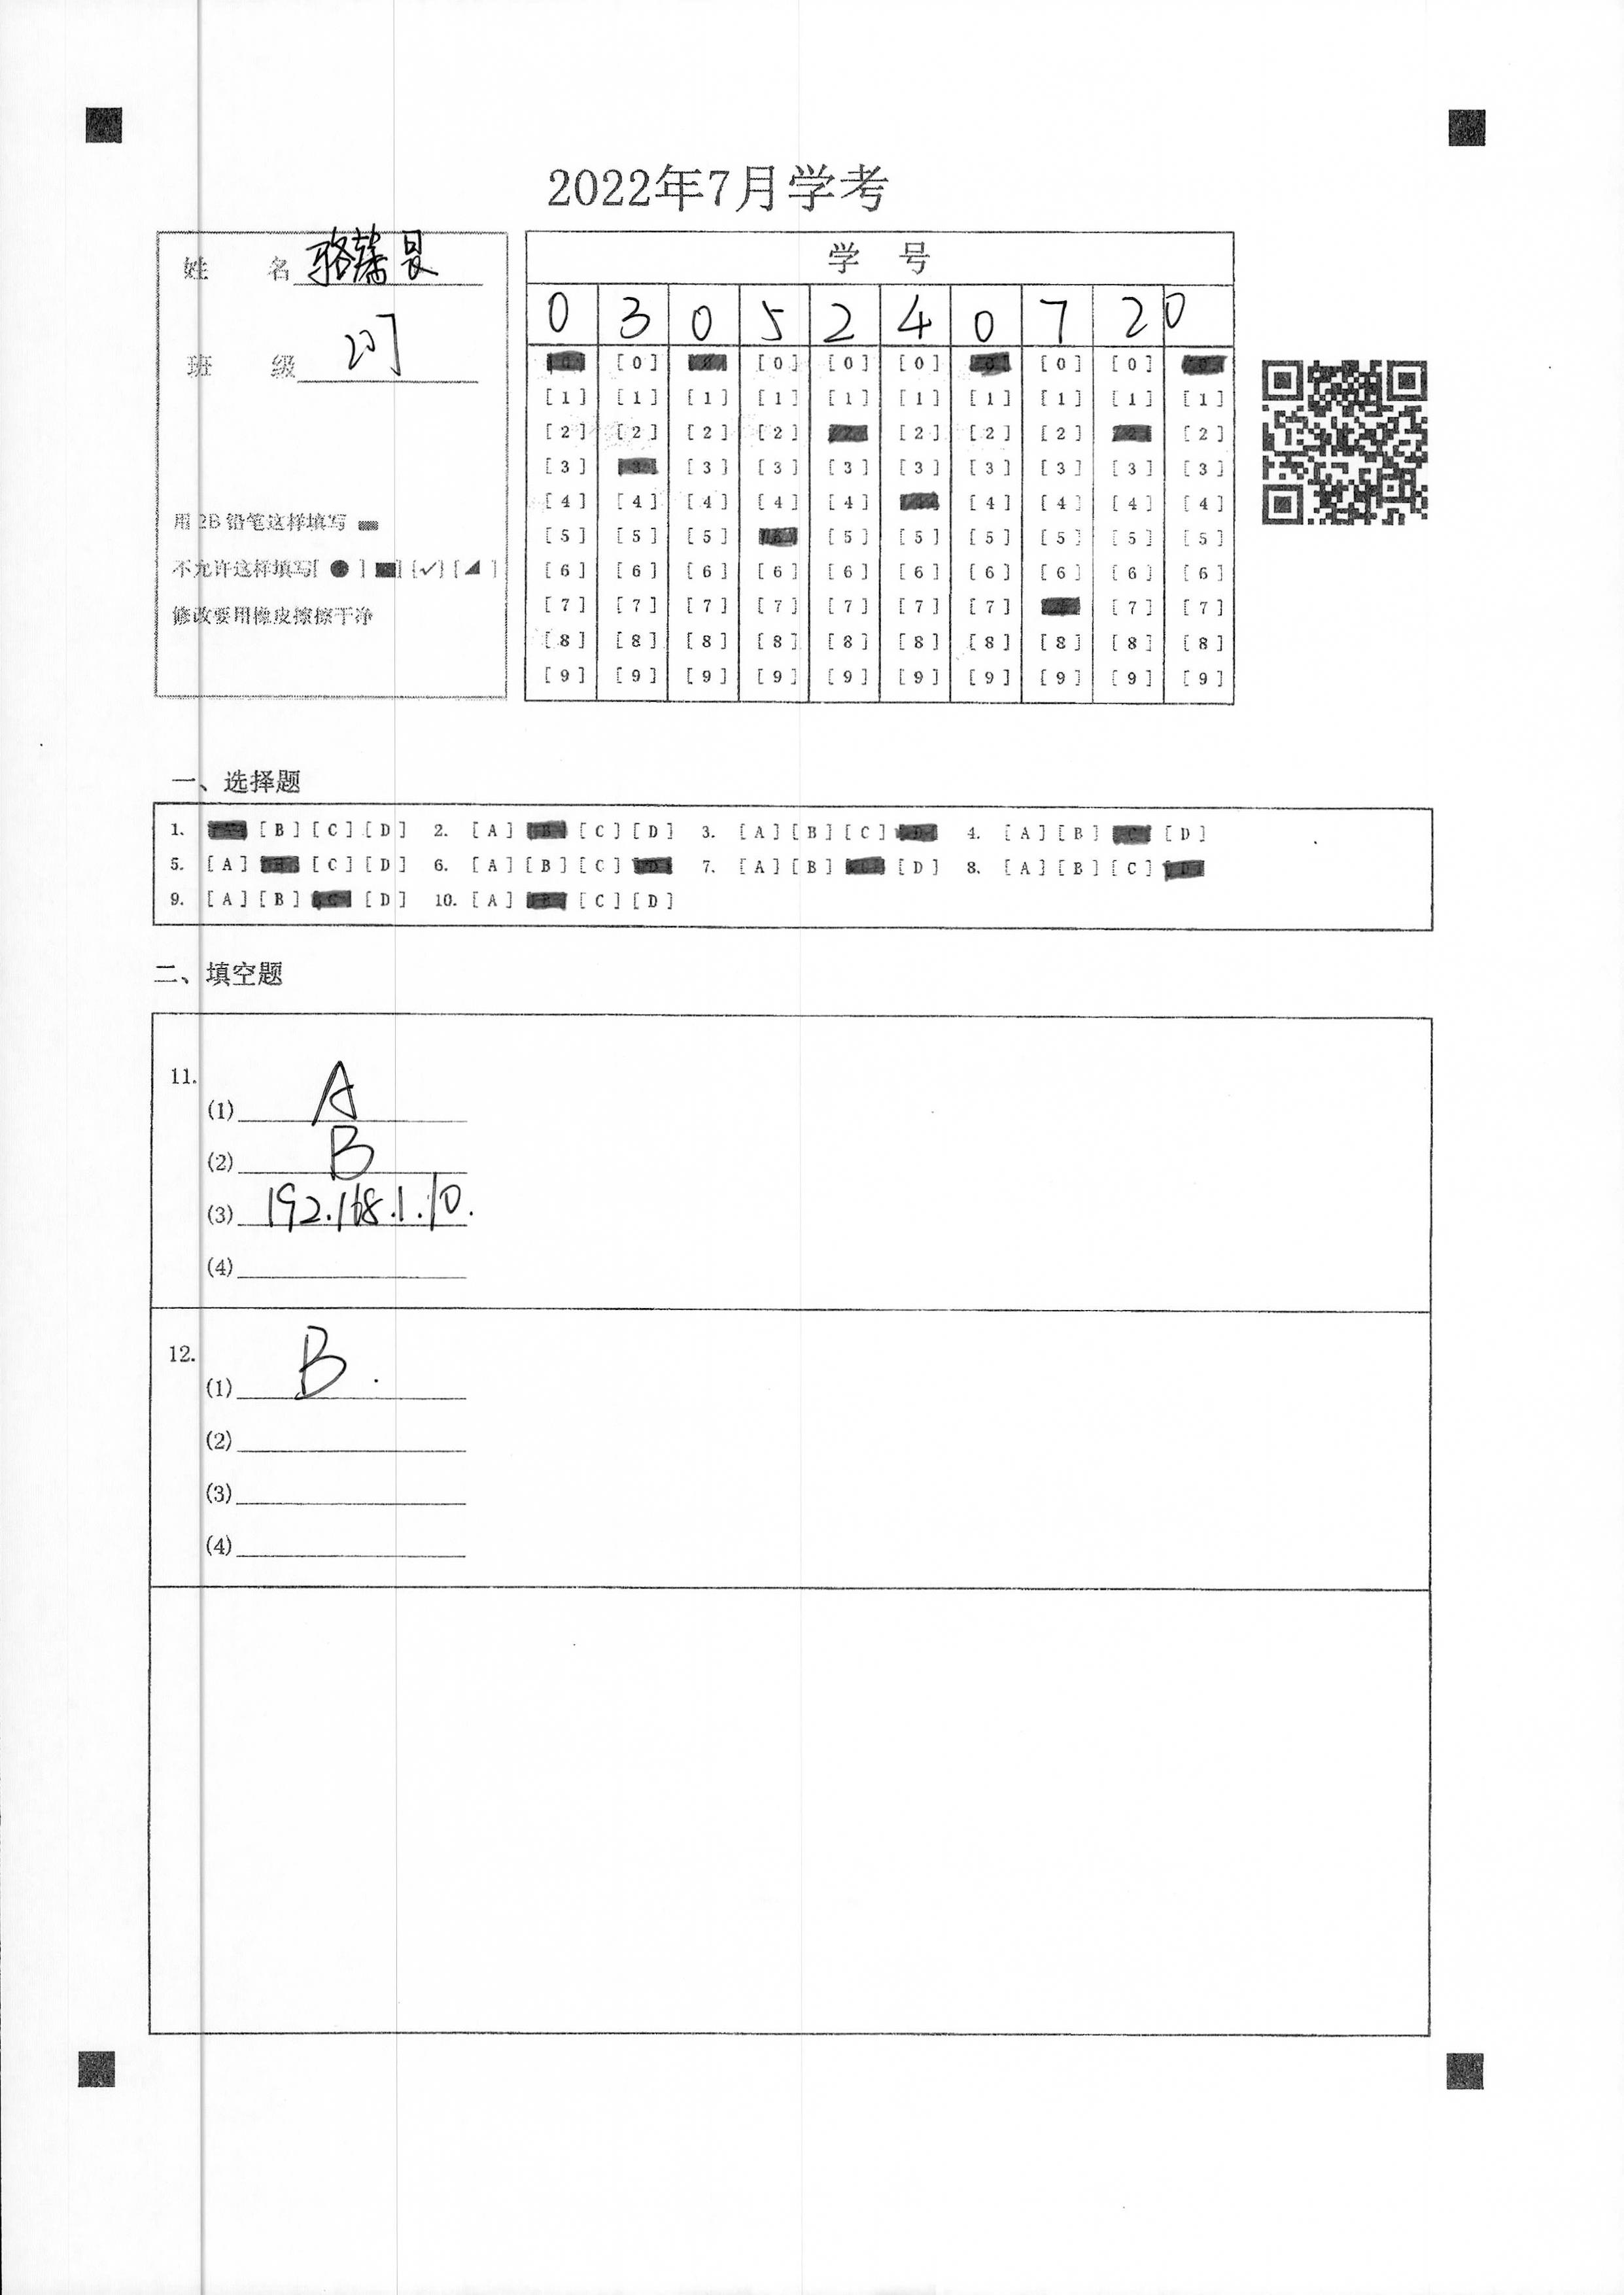 2022年7月学考
姓 名
班 级 207
用2B铅笔这样填写
不允许这样填写[ ● ] ■] [✓] [◢ ]
修改要用橡皮擦擦干净
学 号
0 3 0 5 2 4 0 7 2 0
[0] [0] [0] [0] [0] [0]
[1] [1] [1] [1] [1] [1] [1] [1] [1] [1]
[2] [2] [2] [2] [2] [2] [2] [2]
[3] [3] [3] [3] [3] [3] [3] [3] [3]
[4] [4] [4] [4] [4] [4] [4] [4] [4]
[5] [5] [5] [5] [5] [5] [5] [5] [5]
[6] [6] [6] [6] [6] [6] [6] [6] [6] [6]
[7] [7] [7] [7] [7] [7] [7] [7] [7]
[8] [8] [8] [8] [8] [8] [8] [8] [8] [8]
[9] [9] [9] [9] [9] [9] [9] [9] [9] [9]
一、选择题
1. [B] [C] [D] 2. [A] [C] [D] 3. [A] [B] [C] 4. [A] [B] [D]
5. [A] [C] [D] 6. [A] [B] [C] 7. [A] [B] [D] 8. [A] [B] [C]
9. [A] [B] [D] 10. [A] [C] [D]
二、填空题
11.
(1) A
(2) B
(3) 192.168.1.10.
(4)
12.
(1) B.
(2)
(3)
(4)